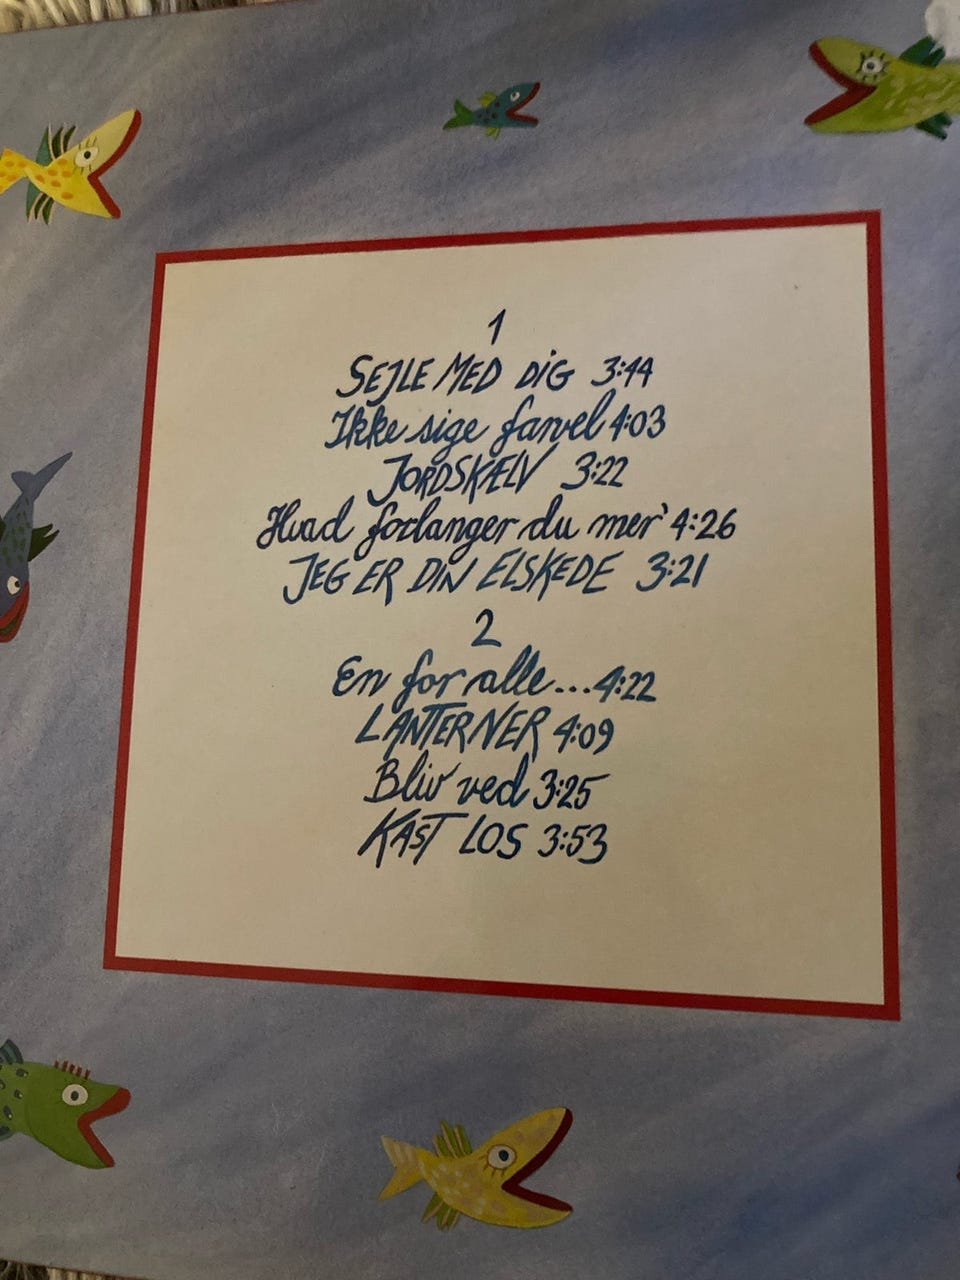 1
SEJLE MED DIG 3:44
Ikke sige farvel 4:03
JORDSKÆLV 3:22
Hvad forlanger du mer' 4:26
JEG ER DIN ELSKEDE 3:21
2
En for alle...4:22
LANTERNER 4:09
Bliv ved 3:25
KAST LOS 3:53